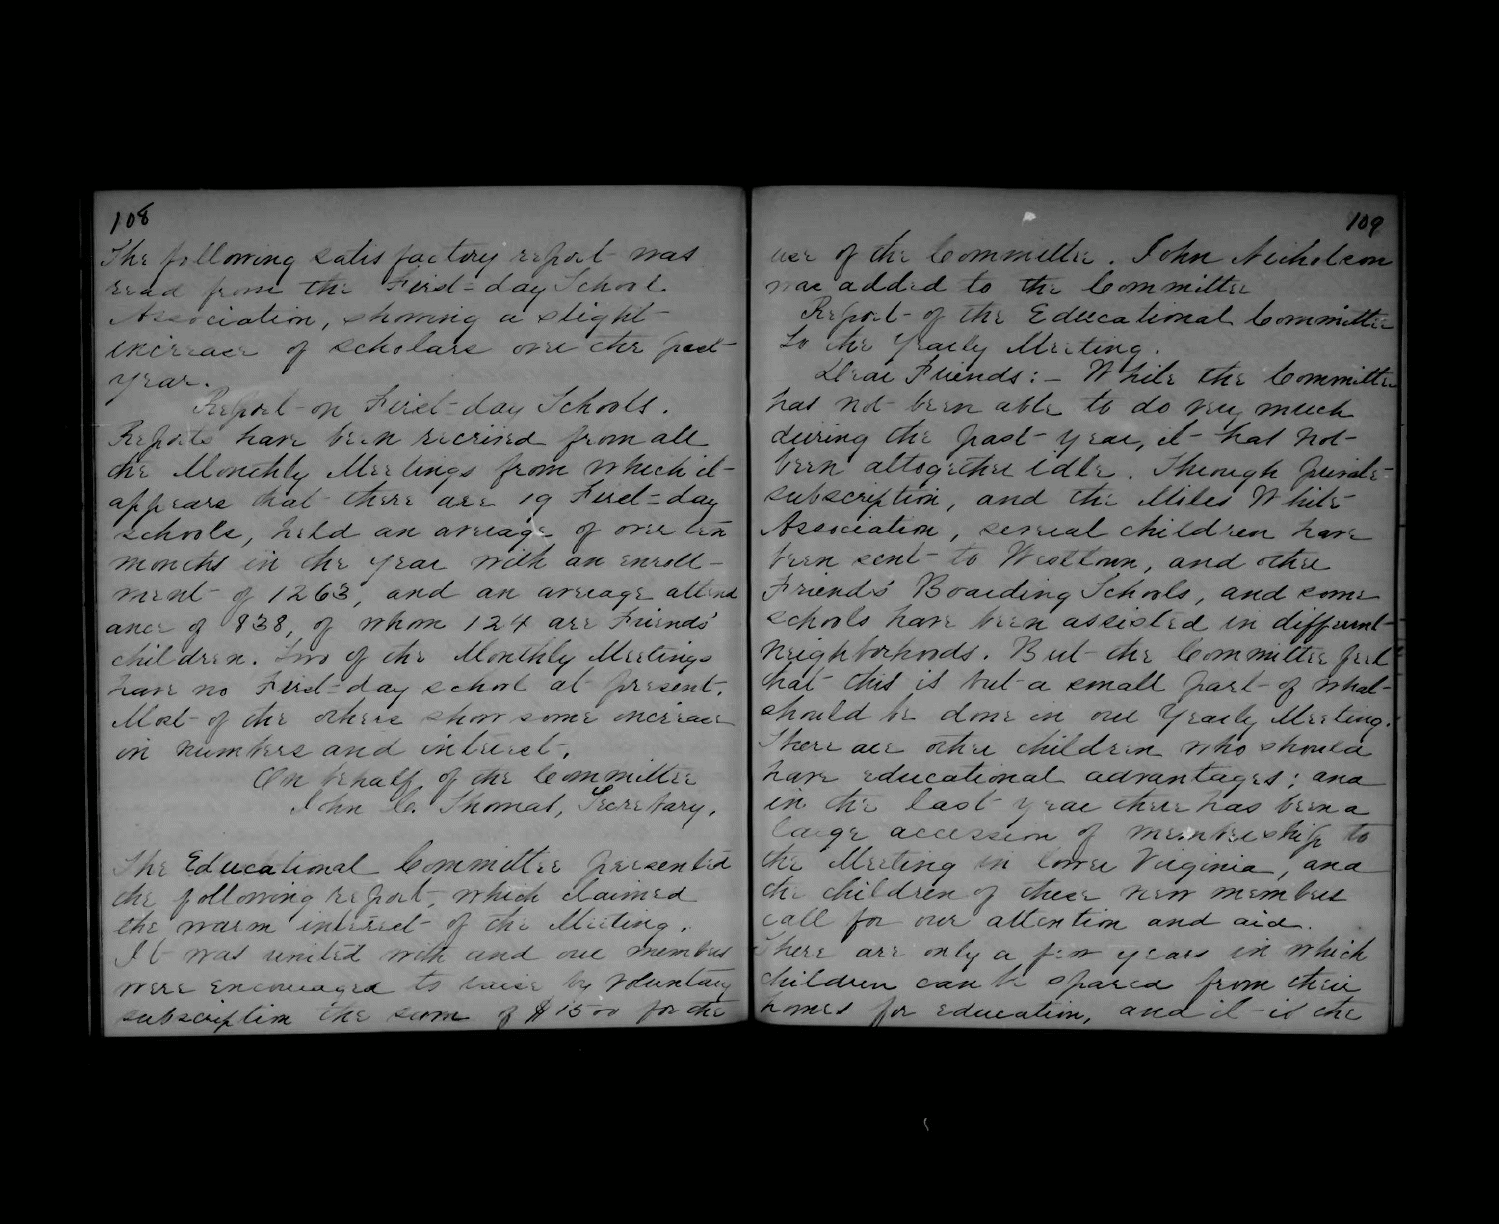 108
The following satisfactory report was
read from the First-day School
Association, showing a slight
increase of scholars over the past
year.
Report on First-day Schools.
Reports have been received from all
the Monthly Meetings from which it
appears that there are 19 First-day
schools, held an average of over ten
months in the year with an enroll-
ment of 1263, and an average attend
ance of 838, of whom 124 are Friends'
children. Two of the Monthly Meetings
have no First-day school at present.
Most of the others show some increase
in numbers and interest.
On behalf of the Committee
John C. Thomas, Secretary.
The Educational Committee presented
the following report, which claimed
the warm interest of the Meeting.
It was united with and our members
were encouraged to raise by voluntary
subscription the sum of $1500 for the
109
use of the Committee. John Nicholson
was added to the Committee
Report of the Educational Committee
To the Yearly Meeting.
Dear Friends:- While the Committee
has not been able to do very much
during the past year, it has not
been altogether idle. Through private
subscription, and the Miles White
Association, several children have
been sent to Westtown, and other
Friends' Boarding Schools, and some
schools have been assisted in different
neighborhoods. But the Committee feel
that this is but a small part of what
should be done in our Yearly Meeting.
There are other children who should
have educational advantages; and
in the last year there has been a
large accession of membership to
the Meeting in lower Virginia, and
the children of these new members
call for our attention and aid.
There are only a few years in which
children can be spared from their
homes for education, and it is the